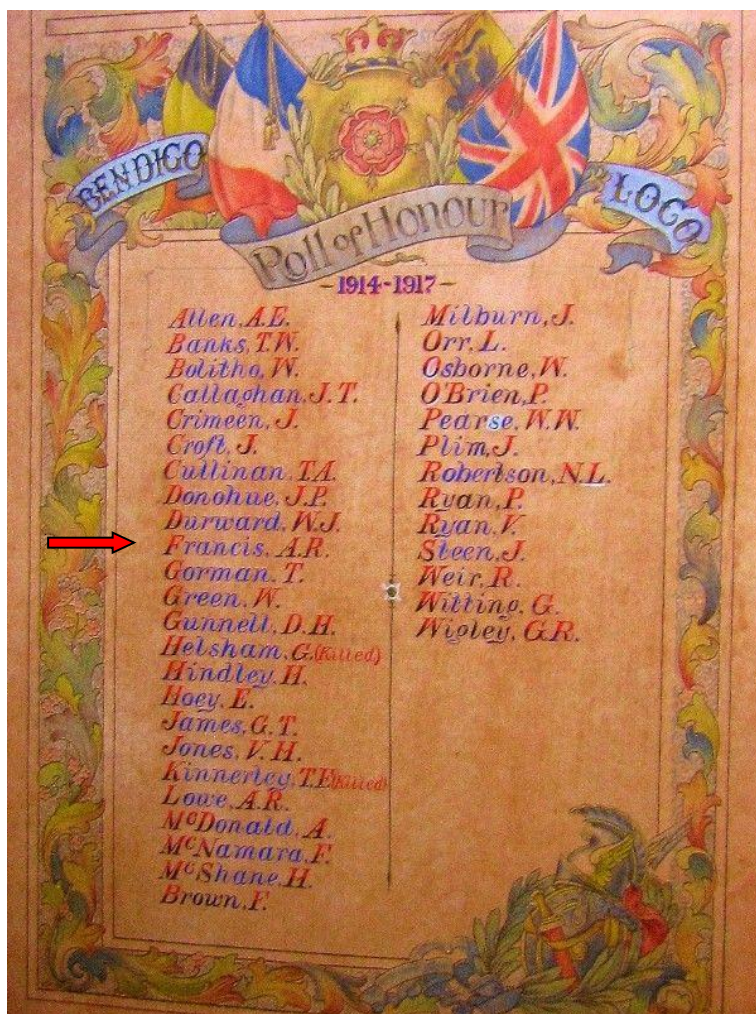 BENDIGO
LOCO
Roll of Honour
- 1914-1917 -
Allen, A.E.
Banks, T.W.
Bolitho, W.
Callaghan, J.T.
Crimeen, J.
Croft, J.
Cullinan, T.A.
Donohue, J.P.
Durward, W.J.
Francis, A.R.
Gorman, T.
Green, W.
Gunnell, D.H.
Helsham, G. (Killed)
Hindley, H.
Hoey, E.
James, G.T.
Jones, V.H.
Kinnerley, T.F. (Killed)
Lowe, A.R.
McDonald, A.
McNamara, F.
McShane, H.
Brown, F.
Milburn, J.
Orr, L.
Osborne, W.
O'Brien, P.
Pearse, W.W.
Plim, J.
Robertson, N.L.
Ryan, P.
Ryan, V.
Steen, J.
Weir, R.
Witting, G.
Wigley, G.R.